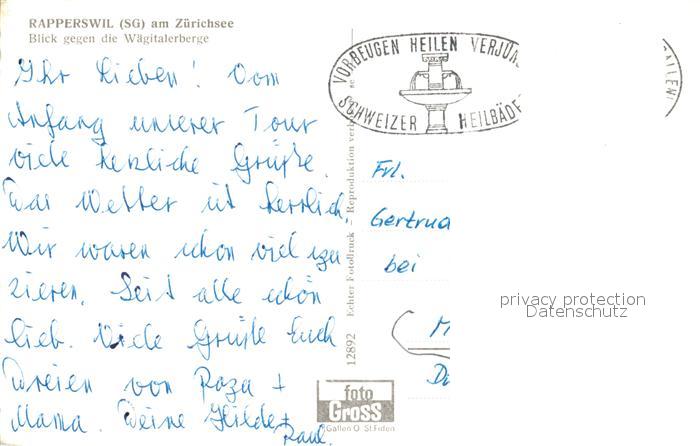 RAPPERSWIL (SG) am Zürichsee
Blick gegen die Wägitalerberge
Ihr Lieben! Vom
Anfang unserer Tour
viele herzliche Grüße.
Das Wetter ist herrlich.
Wir waren schon viel spa
zieren. Seid alle schön
lieb. Viele Grüße Euch
Dreien von Papa +
Mama. Deine Hilde +
Paul.
VORBEUGEN HEILEN VERJÜN
SCHWEIZER HEILBÄDE
GALLEN
Frl.
Gertrud
bei
M
Echter Fotodruck – Reproduktion
12892
foto
GROSS
Gallen O St.Fiden
privacy protection
Datenschutz